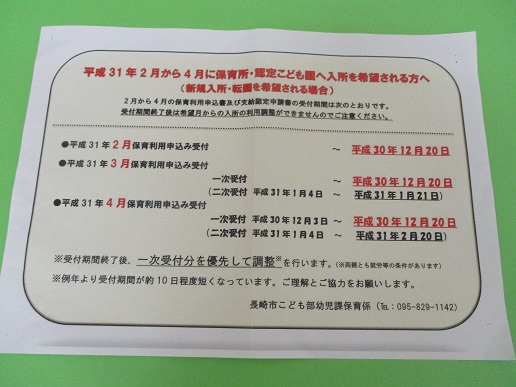 平成31年2月から4月に保育所・認定こども園へ入所を希望される方へ
(新規入所・転園を希望される場合)
2月から4月の保育利用申込書及び支給認定申請書の受付期間は次のとおりです。
受付期間終了後は希望月からの入所の利用調整ができませんのでご注意ください。
●平成31年2月保育利用申込み受付 ～ 平成30年12月20日
●平成31年3月保育利用申込み受付
一次受付 ～ 平成30年12月20日
(二次受付 平成31年1月4日 ～ 平成31年1月21日)
●平成31年4月保育利用申込み受付
一次受付 平成30年12月3日 ～ 平成30年12月20日
(二次受付 平成31年1月4日 ～ 平成31年2月20日)
※受付期間終了後、一次受付分を優先して調整※を行います。(※両親とも就労等の条件があります)
※例年より受付期間が約10日程度短くなっています。ご理解とご協力をお願いします。
長崎市こども部幼児課保育係(℡:095-829-1142)